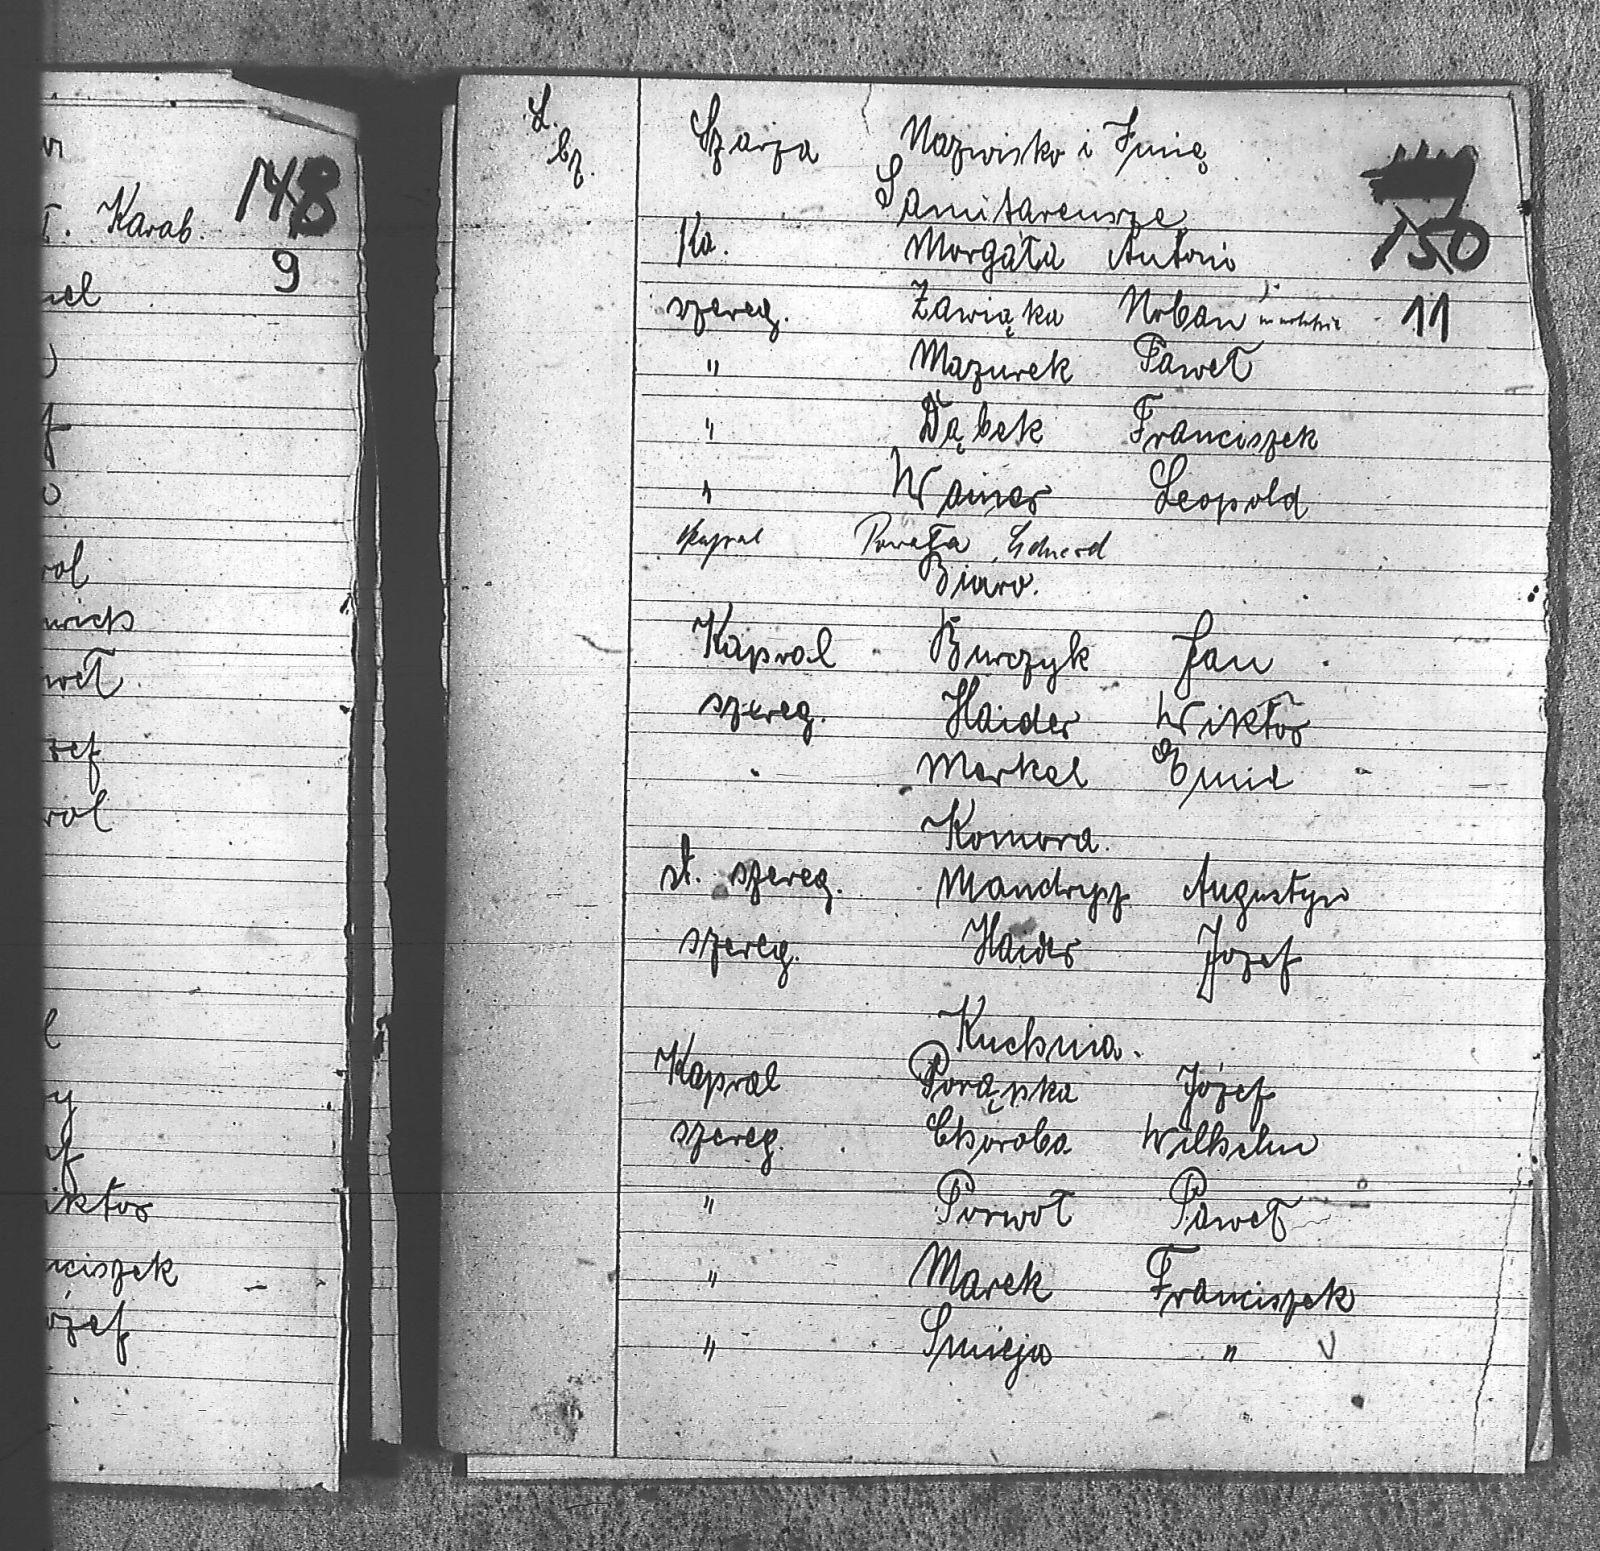 T. Karab. 148
9
nel
f
rol
wich
weł
zef
rol
l
y
f
iktor
nciszek
ózef
L. bz. Szarża Nazwisko i Imię
Sanitareusze 150
Ka. Morgała Antoni
szereg. Zawiąka Urban 11
" Mazurek Paweł
" Dąbek Franciszek
" Wainer Leopold
Kapral Powała Edward
Biuro.
Kapral Burczyk Jan
szereg. Haider Wiktor
Merkel Emil
Komora.
st. szereg. Mandrysz Augustyn
szereg. Haider Józef
Kuchnia.
Kapral Porąpka Józef
szereg. Choroba Wilhelm
" Porwoł Paweł
" Marek Franciszek
" Smieja " V